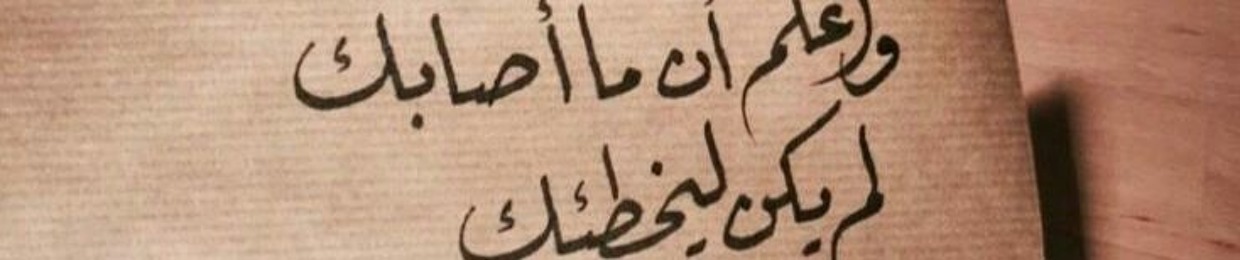 واعلم أن ما أصابك
لم يكن ليخطئك